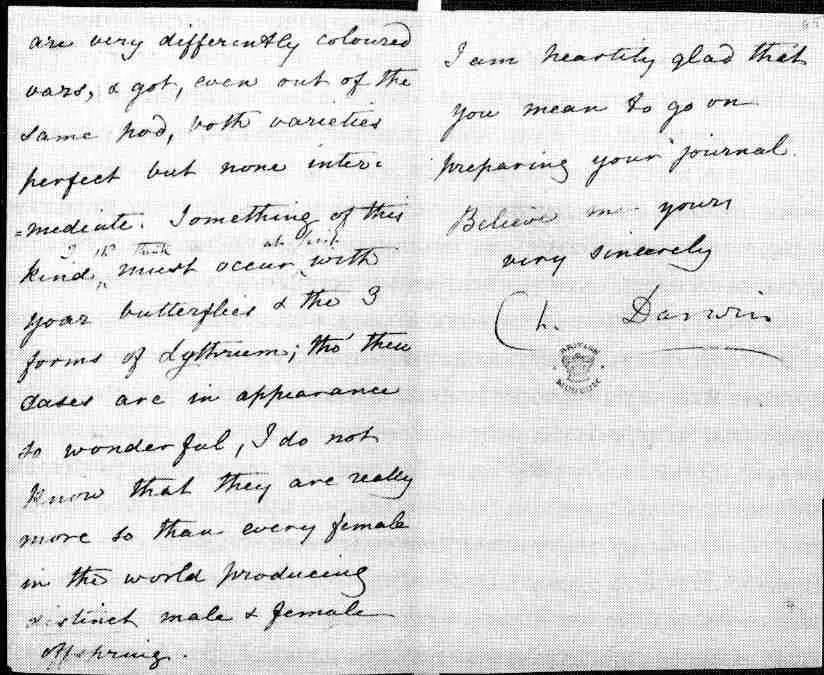 are very differently coloured
vars, & got, even out of the
same pod, both varieties
perfect but none inter-
=mediate. Something of this
I shd think at first
kind, must occur with
your butterflies & the 3
forms of Lythrum; tho' these
cases are in appearance
so wonderful, I do not
know that they are really
more so than every female
in the world producing
distinct male & female
offspring.
I am heartily glad that
you mean to go on
preparing your journal.
Believe me yours
very sincerely
Ch. Darwin
BRITISH
MUSEUM